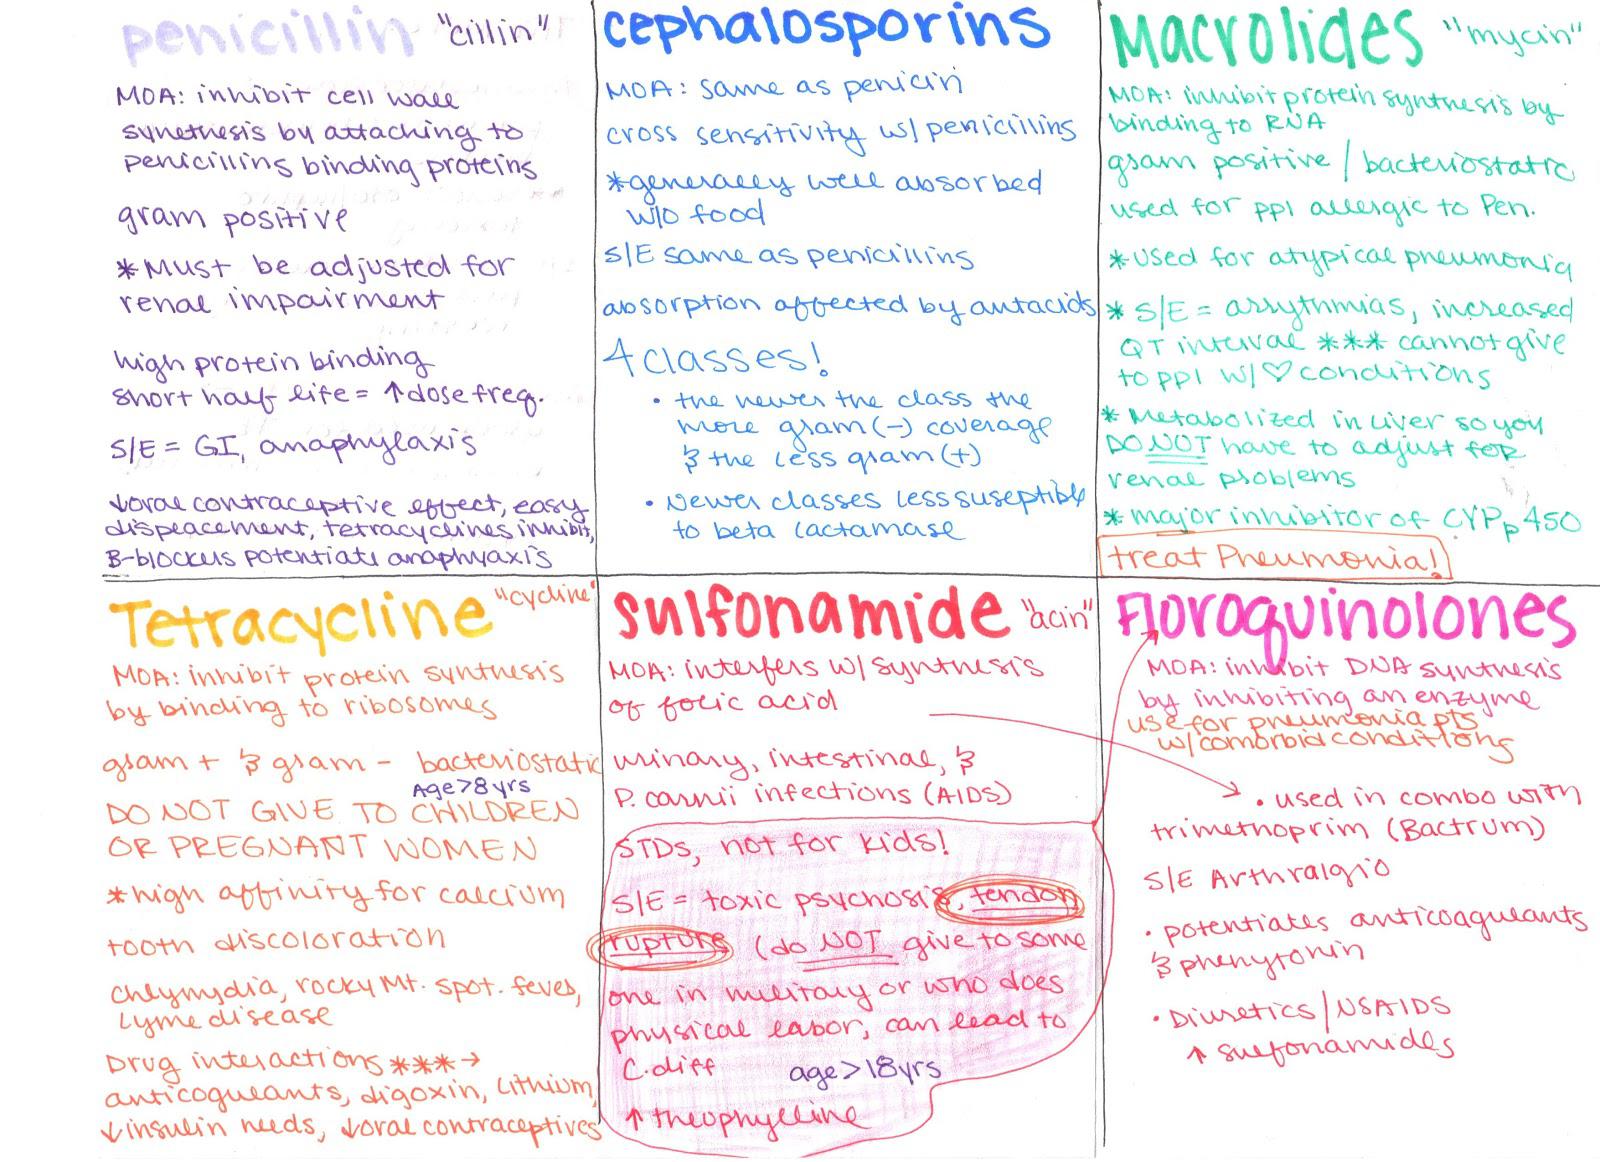 penicillin "cillin"
MOA: inhibit cell wall
synethesis by attaching to
penicillins binding proteins
gram positive
*Must be adjusted for
renal impairment
high protein binding
short half life = ↑dose freq.
S/E = GI, anaphylaxis
↓oral contraceptive effect, easy
dispeacement, tetracyclines inhibit,
B-blockers potentiate anaphyaxis
cephalosporins
MOA: same as penicin
cross sensitivity w/ penicillins
*generally well absorbed
w/o food
S/E same as penicillins
absorption affected by antacids
4 Classes!
• the newer the class the
more gram (-) coverage
& the less gram (+)
• Newer classes less suseptible
to beta lactamase
Macrolides "mycin"
MOA: inhibit protein synthesis by
binding to RNA
gram positive / bacteriostatic
used for ppl allergic to Pen.
*used for atypical pneumonia
* S/E = arrythmias, increased
QT interval *** cannot give
to ppl w/ ♡ conditions
* Metabolized in liver so you
DO NOT have to adjust for
renal problems
* major inhibitor of CYPp450
treat Pneumonia!
Tetracycline "cycline"
MOA: inhibit protein synthesis
by binding to ribosomes
gram + & gram - bacteriostatic
Age>8yrs
DO NOT GIVE TO CHILDREN
OR PREGNANT WOMEN
*high affinity for calcium
tooth discoloration
Chlymydia, rocky Mt. spot. fever,
Lyme disease
Drug interactions ***→
anticoagulants, digoxin, Lithium,
↓insulin needs, ↓oral contraceptives
sulfonamide "acin"
MOA: interfers w/ synthesis
of folic acid
urinary, intestinal, &
P. carnii infections (AIDS)
STDs, not for kids!
S/E = toxic psychosis, tendon
rupture (do NOT give to some
one in military or who does
physical labor, can lead to
C.diff age>18yrs
↑ theophylline
Floroquinolones
MOA: inhibit DNA synthesis
by inhibiting an enzyme
use for pneumonia pts
w/comorbid conditions
• used in combo with
trimethoprim (Bactrum)
S/E Arthralgio
• potentiates anticoagulants
& phenytonin
• Diuretics/NSAIDS
↑ sulfonamides